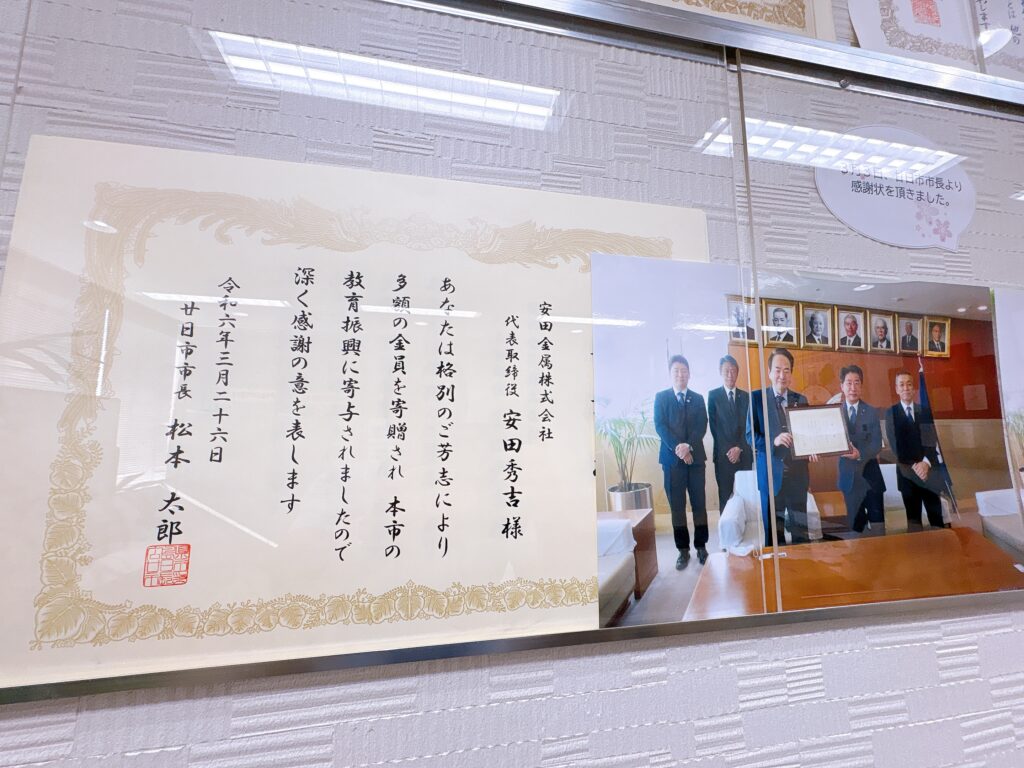 安田金属株式会社
代表取締役 安田秀吉 様
あなたは格別のご芳志により
多額の金員を寄贈され 本市の
教育振興に寄与されましたので
深く感謝の意を表します
令和六年三月二十六日
廿日市市長 松本 太郎
日市市長より
感謝状を頂きました。